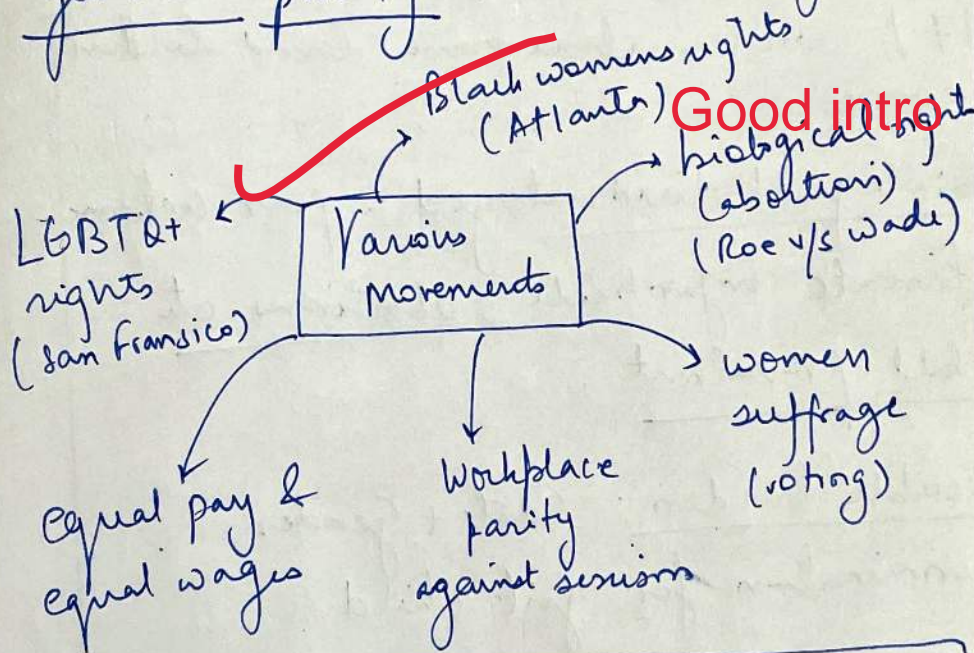 Black womens rights
(Atlanta)
Good intro
biological right
(abortion)
(Roe v/s wade)
LGBTQ+
rights
(san fransico)
Various
movements
women
suffrage
(voting)
equal pay &
equal wages
Workplace
parity
against sexism